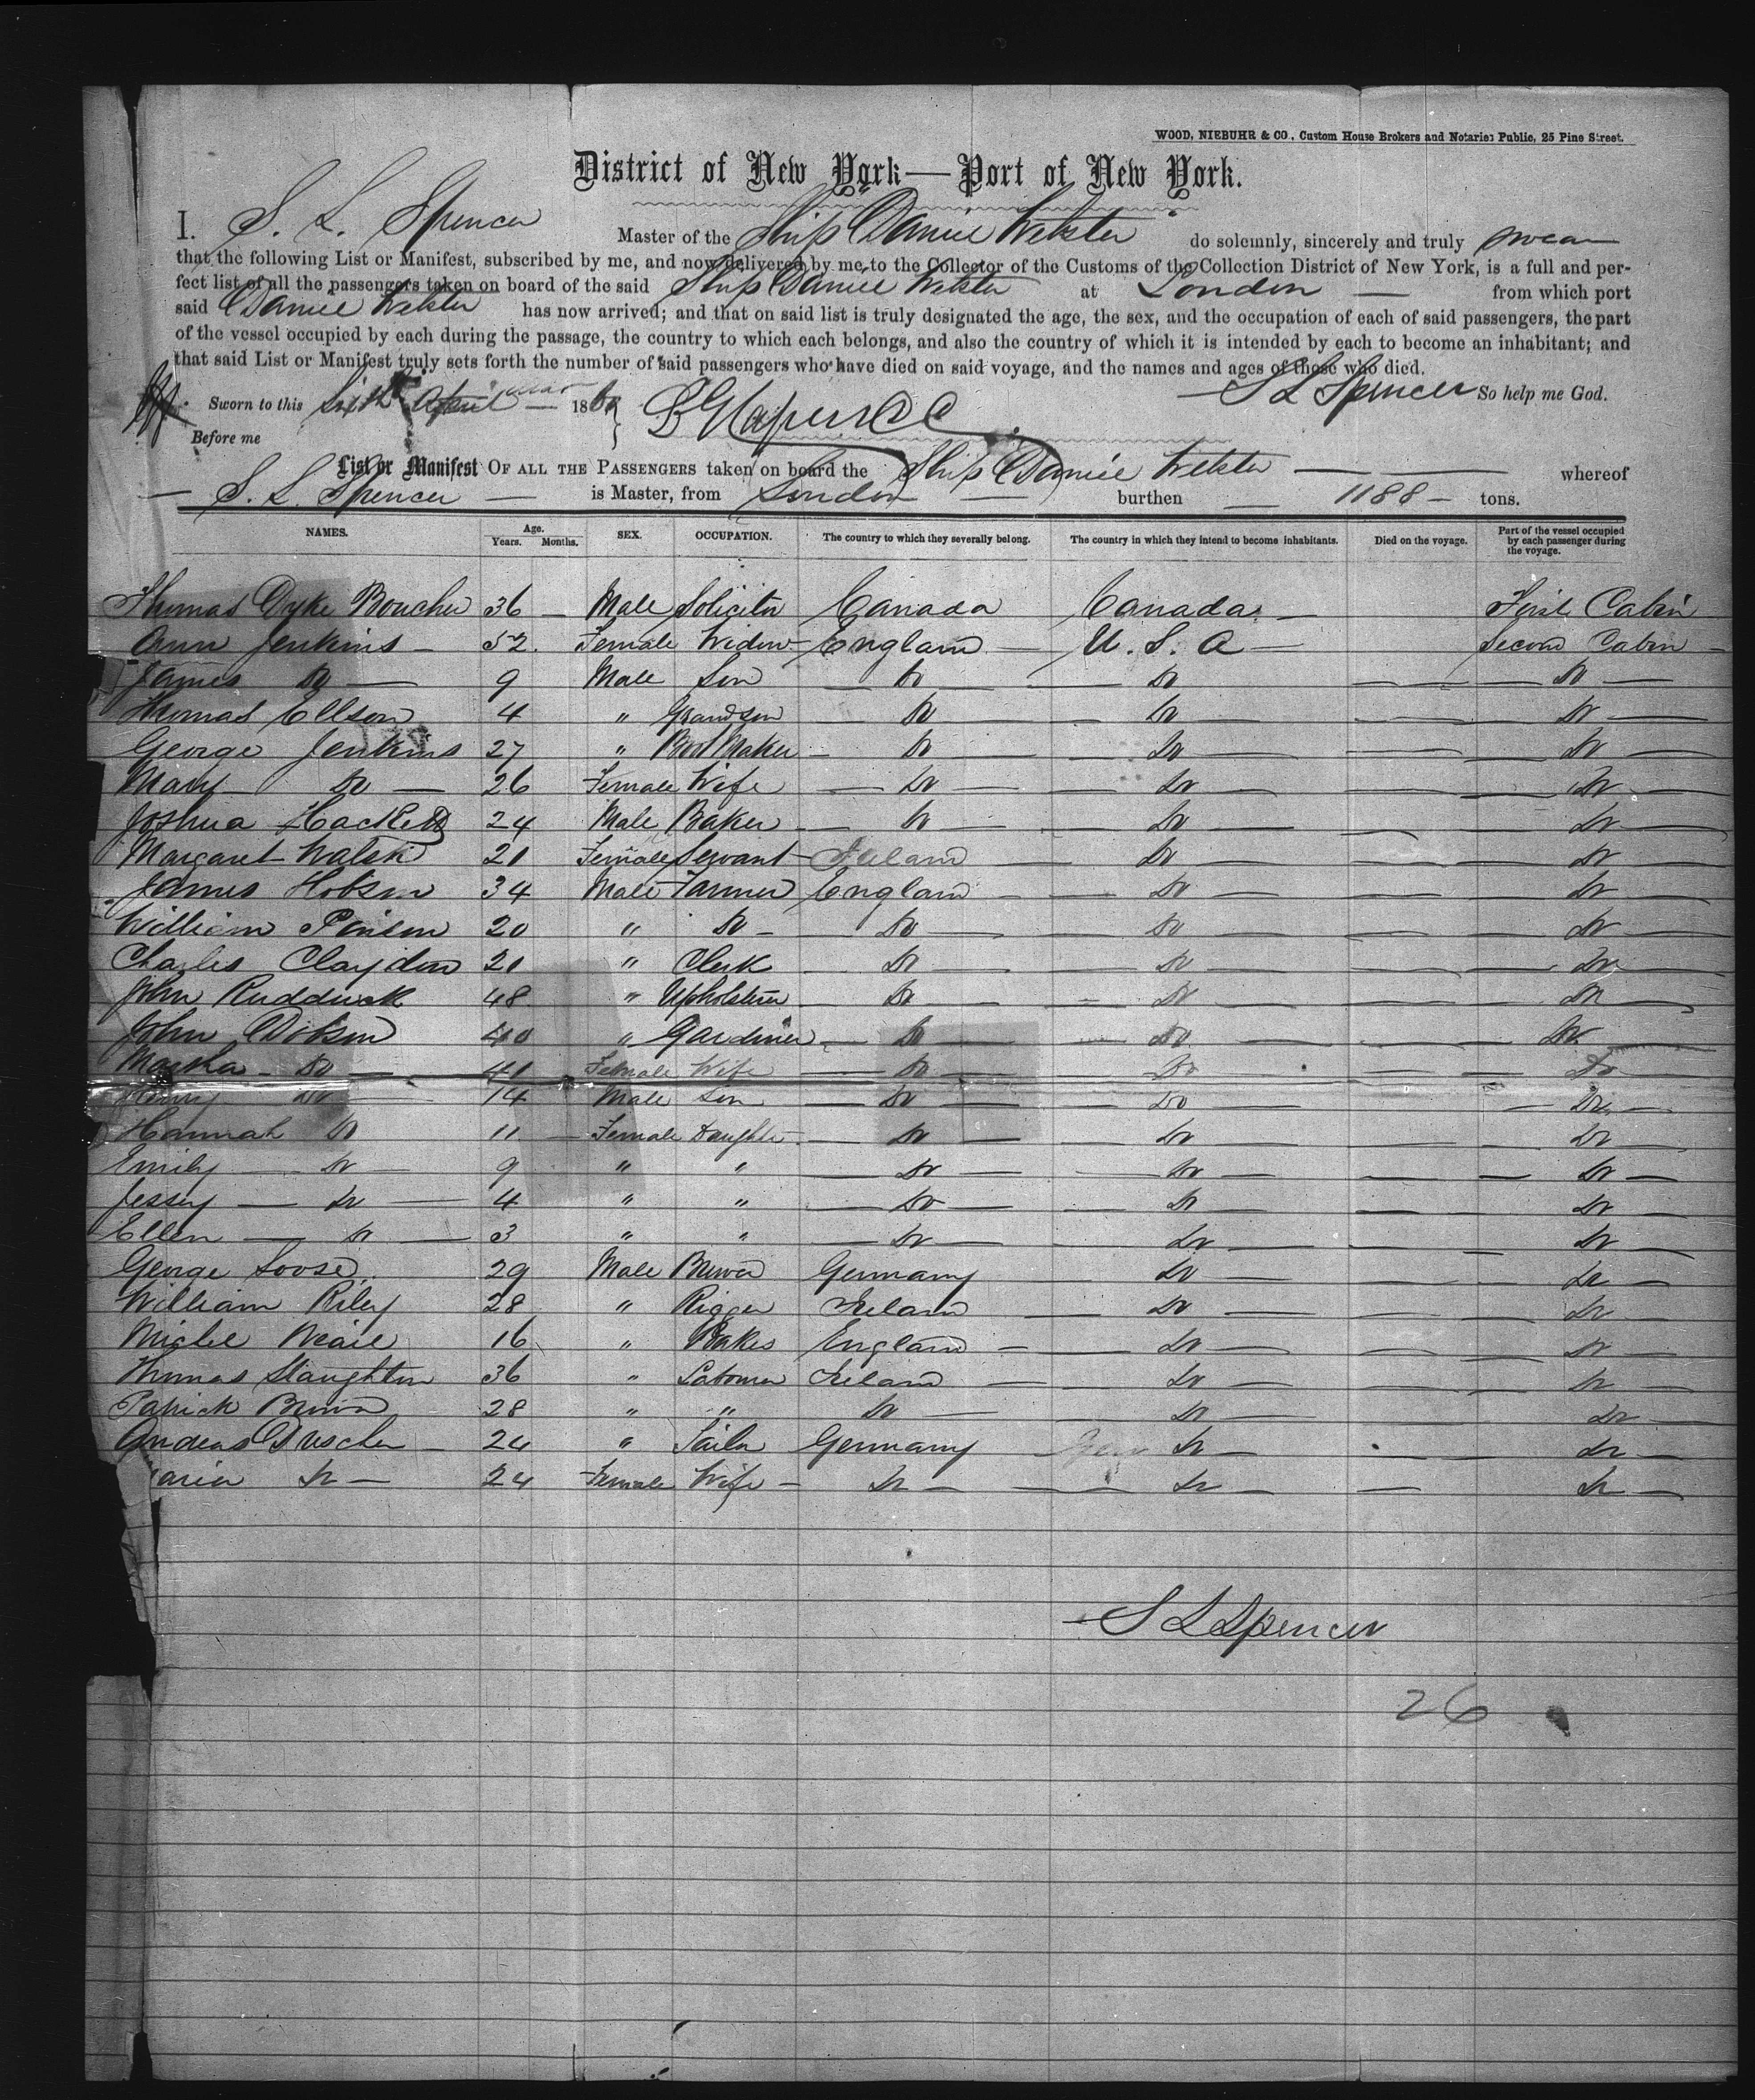 WOOD, NIEBUHR & CO., Custom House Brokers and Notaries Public, 25 Pine Street.
District of New York—Port of New York.
I. S. L. Spencer Master of the Ship Daniel Webster do solemnly, sincerely and truly swear
that the following List or Manifest, subscribed by me, and now delivered by me to the Collector of the Customs of the Collection District of New York, is a full and per-
fect list of all the passengers taken on board of the said Ship Daniel Webster at London — from which port
said Daniel Webster has now arrived; and that on said list is truly designated the age, the sex, and the occupation of each of said passengers, the part
of the vessel occupied by each during the passage, the country to which each belongs, and also the country of which it is intended by each to become an inhabitant; and
that said List or Manifest truly sets forth the number of said passengers who have died on said voyage, and the names and ages of those who died.
Sworn to this Sixth April 186 S L Spencer So help me God.
Before me
List or Manifest OF ALL THE PASSENGERS taken on board the Ship Daniel Webster — whereof
— S. L. Spencer — is Master, from London — burthen — 1188 — tons.
NAMES. Age. Years. Months. SEX. OCCUPATION. The country to which they severally belong. The country in which they intend to become inhabitants. Died on the voyage. Part of the vessel occupied by each passenger during the voyage.
Thomas Dyke Boucher 36 — Male Solicitor Canada Canada — First Cabin
Ann Jenkins — 52 Female Widow England — U. S. A — Second Cabin —
James Do — 9 Male Son — Do — Do — — Do —
Thomas Ellson 4 " Grandson Do — Do — — Do —
George Jenkins 27 " Boot Maker — Do — Do — — Do —
Mary Do — 26 Female Wife — Do — Do — — Do —
Joshua Hackett 24 Male Baker — Do — Do — — Do —
Margaret Walsh 21 Female Servant — Ireland — Do — — Do —
James Hobson 34 Male Farmer England — Do — — Do —
William 20 " Do — Do — Do — — Do —
Charles Claydon 21 " Clerk — Do — Do — — Do —
John Rudduck 48 " Upholsterer — Do — Do — — Do —
John Dobson 40 " Gardiner — Do — Do — — Do
Martha — Do — 41 Female Wife — Do — Do — — Do
Henry Do 14 Male Son — Do — Do — — Do —
Hannah Do 11 — Female Daughter — Do — Do — — Do
Emily — Do — 9 " " — Do — Do — — Do —
Jessey — Do — 4 " " — Do — Do — — Do —
Ellen — Do — 3 " " — Do — Do — — Do —
George Loose 29 Male Brewer Germany Do — — Do —
William Riley 28 " Rigger Ireland — Do — — Do —
16 " England — Do — — Do —
Thomas Staughton 36 " Labourer Ireland — Do — — Do —
Patrick Brown 28 " " Do — Do — — Do —
Andreas 24 " Tailor Germany Do — Do —
aria Do — 24 Female Wife — Do — Do — — Do —
S L Spencer
26